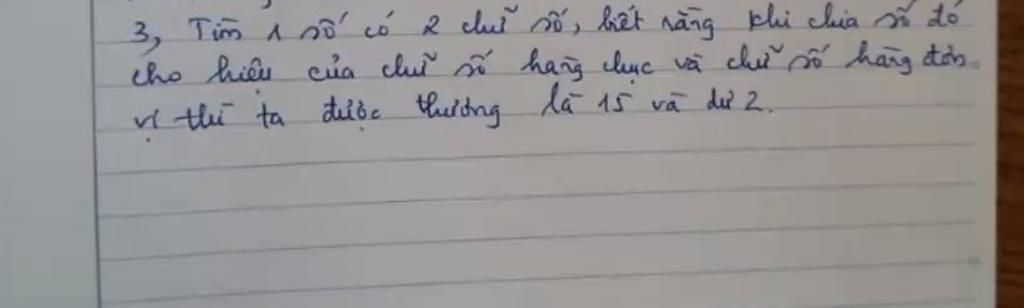 3, Tìm 1 số có 2 chữ số, biết rằng khi chia số đó
cho hiệu của chữ số hàng chục và chữ số hàng đơn
vị thì ta được thương là 15 và dư 2.